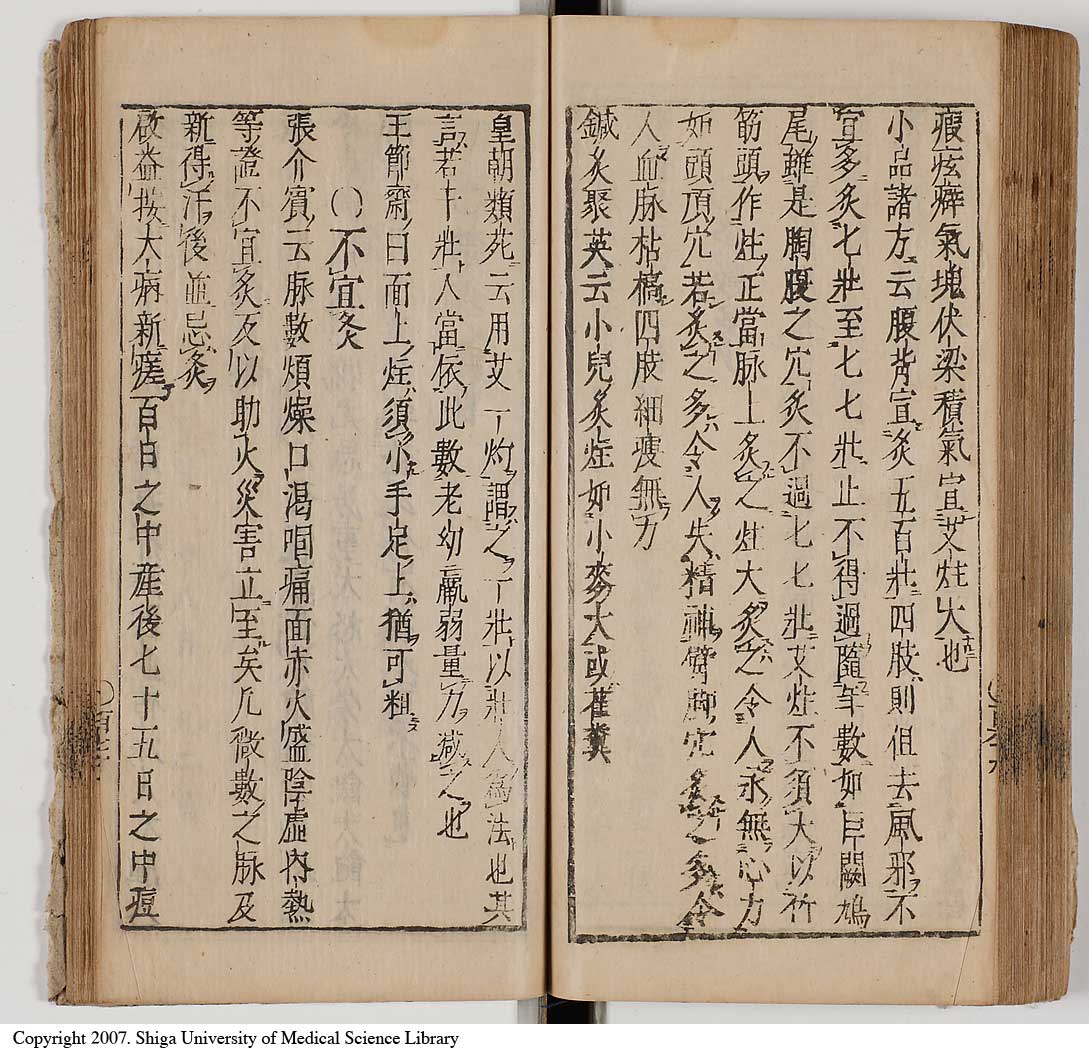 瘕痃癖氣塊伏梁積氣宜艾炷大也
小品諸方云腹背宜灸五百壯四肢則但去風邪不
宜多灸七壯至七七壯止不得過隨年數如巨闕鳩
尾雖是胸腹之穴灸不過七七壯艾炷不須大以竹
筋頭作炷正當脉上灸之炷大灸之令人永無心力
如頭頂穴若灸之多令人失精神臂脚穴灸之多令
人血脉枯槁四肢細瘦無力
鍼灸聚英云小兒灸炷如小麥大或雀糞
皇朝類苑云用艾一灼謂之一壯以壯人爲法也其
言若干壯人當依此數老幼羸弱量力减之也
王節齋曰面上炷須小手足上猶可粗
〇不宜灸
張介賓云脉數煩燥口渴咽痛面赤火盛陰虛内熱
等證不宜灸反以助火災害立至矣凢微數之脉及
新得汗後並忌灸
啟益按大病新瘥百日之中產後七十五日之中痘
Copyright 2007. Shiga University of Medical Science Library